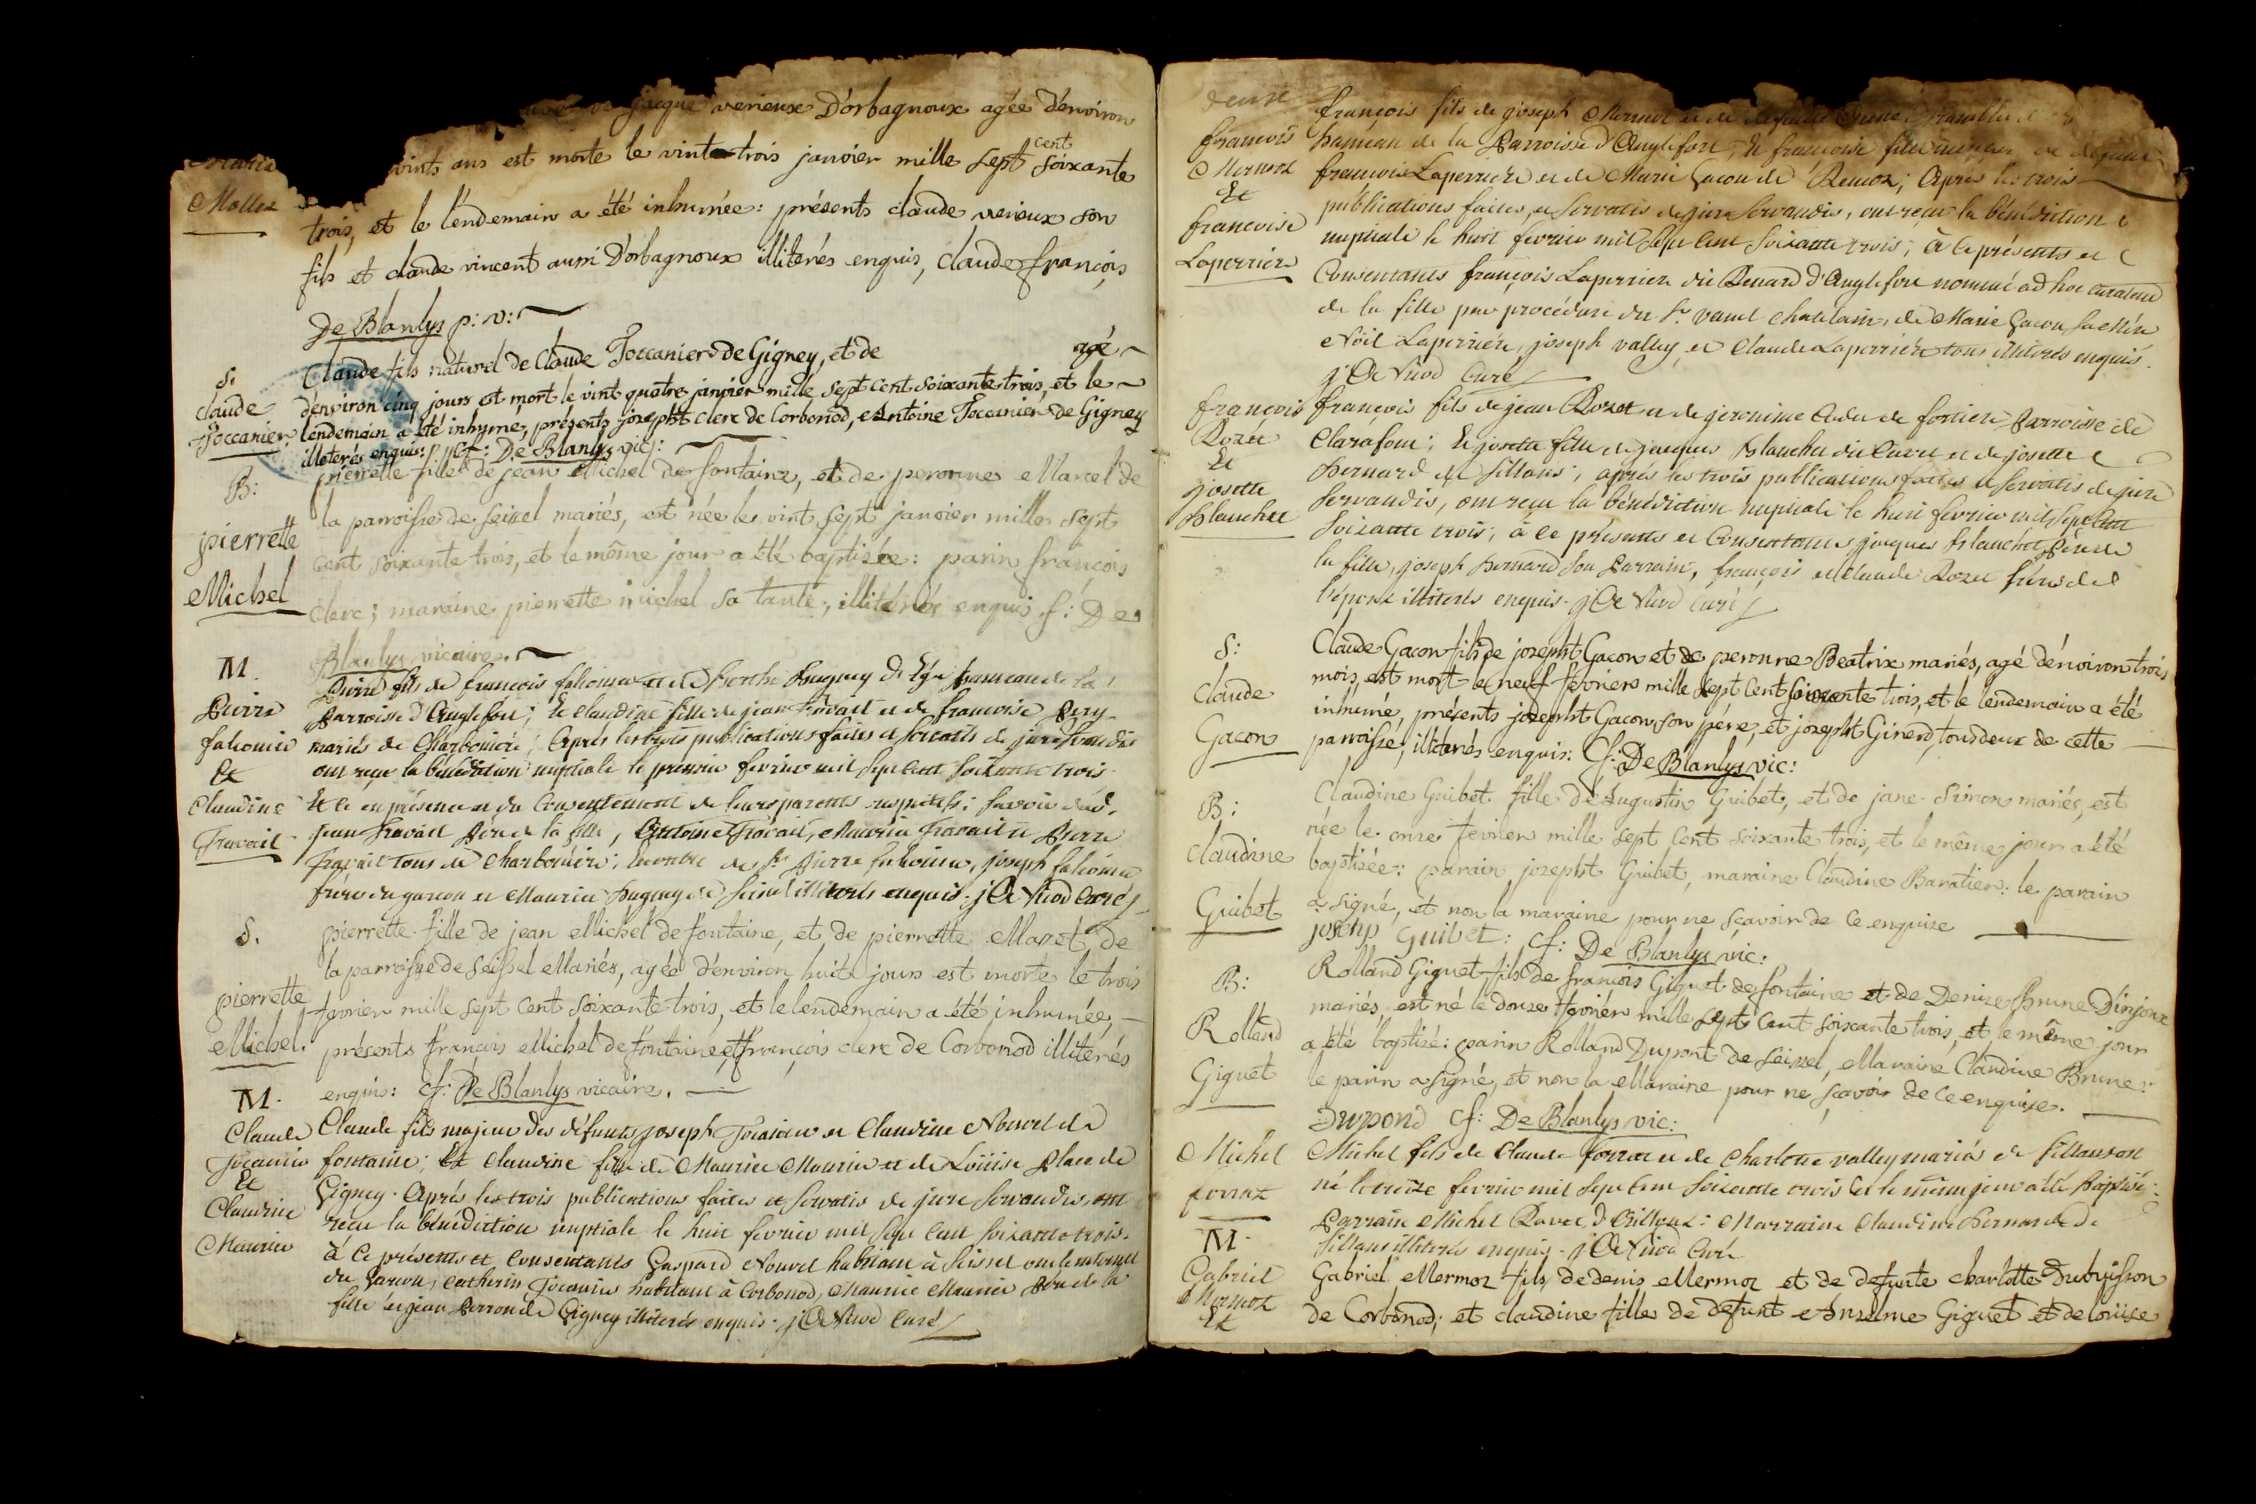 jacque verieux D'orbagnoux agée d'environ
vints ans est morte le vint trois janvier mille sept cent soixante
Mollex
trois, et le l'endemain a été inhumée: présents claude verieux son
fils et claude vincent aussi D'orbagnoux illiterés enquis, claude françois
De Blanlys p: v:
S.
claude
Toccanier
Claude fils naturel de Claude Toccanier de Gigney, et de agé
d'environ cinq jours est mort le vint quatre janvier mille sept cent soixante trois, et le
lendemain a été inhumé, présents josepht clerc de Corbonod, Antoine Toccanier de Gigney
illiterés enquis: cf: De Blanlys vic:
B:
pierrette
Michel
pierrette fille de jean Michel de fontaine, et de peronne Marcel de
la parroisse de seissel mariés, est née le vint sept janvier mille sept
cent soixante trois, et le même jour a été baptisée: parin françois
clerc; maraine pierrette michel sa tante, illiterés enquis cf: De
Blanlys vicaire.
M.
Pierre
falconier
Et
Claudine
Travail
Pierre fils de françois falconier et de Berthe hugney de hameau de la
Parroisse d'Anglefort; Et claudine fille de jean travail et de françoise
mariés de Charbonière; Après les trois publications faites et servatis de jure servandis
ont reçu la bénédiction nuptiale le premier fevrier mil sept cent soixante trois.
Et ce en présence et du Consentement de leurs parents respectifs; savoir dud.
jean travail Père de la fille, Antoine Travail, Maurice travail et Pierre
travail tous de Charbonière; Pierre falconier, joseph falconier
frère du garcon et Maurice hugney de illiterés enquis. j De Vivod Curé
S.
pierrette
Michel.
pierrette fille de jean Michel de fontaine, et de pierrette Maret de
la parroisse de seissel Mariés, agée d'environ huit jours est morte le trois
fevrier mille sept cent soixante trois, et le lendemain a été inhumée,
présents francois Michel de fontaine, et françois clerc de Corbonod illiterés
enquis: cf: De Blanlys vicaire.
M.
Claude
Tocanier
Et
Claudine
Maurier
Claude fils majeur des défunts joseph Tocanier et Claudine Nouvel de
fontaine; Et Claudine fille de Maurice Maurier et de Loüise Place de
Gigney. Après les trois publications faites et servatis de jure servandis, ont
reçu la bénédiction nuptiale le huit fevrier mil sept cent soixante trois.
à ce présents et Consentants Gaspard Nouvel habitant à seissel oncle maternel
du Garcon, Catherin Tocanier habitant à Corbonod, Maurice Maurier Père de la
fille et jean Perron de Gigney illiterés enquis. j De Vivod Curé
francois
Mermoz
Et
francoise
Laperriere
françois fils de joseph Mermoz et de
hameau de la Parroisse d'Anglefort, Et francoise fille
francois Laperriere et de Marie Gacon de Remoz; Après les trois
publications faites, et servatis de jure servandis, ont reçu la bénédiction
nuptiale le huit fevrier mil sept cent soixante trois; à ce présents et
Consentants françois Laperriere dit Renard d'Anglefort nommé ad hoc curateur
de la fille par procédure du Sr. chatelain, de Marie Gacon sa Mère
Noël Laperriére, joseph valley et Claude Laperriére tous illiterés enquis.
j De Vivod Curé
francois
Rozet
Et
josette
Blanchet
francois fils de jean Rozet et de jeronime de fortiere Parroisse de
Clarafont; Et josette fille de jacques Blanchet dit et de josette
Bernard de sillans; après les trois publications faites et servatis de jure
servandis, ont reçu la bénédiction nuptiale le huit fevrier mil sept cent
soixante trois; à ce présents et Consentants jacques Blanchet Père de
la fille, joseph Bernard son Parrain, françois et Claude Rozet frères de
l'époux illiterés enquis. j De Vivod Curé
S:
Claude
Gacon
Claude Gacon fils de josepht Gacon et de peronne Beatrix mariés, agé d'environ trois
mois, est mort le neuf fevrier mille sept cent soixante trois, et le lendemain a été
inhumé, présents josepht Gacon son pére, et josepht Girerd, tous deux de cette
parroisse, illiterés enquis: cf: De Blanlys vic:
B:
Claudine
Guibet
Claudine Guibet fille de Augustin Guibet, et de jane Simon mariés, est
née le onze fevrier mille sept cent soixante trois, et le même jour a été
baptisée: parain josepht Guibet, maraine Claudine Baratier: le parain
a signé, et non la maraine pour ne sçavoir de ce enquise
josehp Guibet: cf: De Blanlys vic:
B:
Rolland
Giguet
Rolland Giguet fils de francois Giguet de fontaine et de Denise Brune D'injoux
mariés, est né le douze fevriér mille sept cent soixante trois, et le même jour
a été baptisé: parin Rolland Dupont de seissel, Maraine Claudine Brune:
le parin a signé, et non la Maraine pour ne sçavoir de ce enquise.
Dupond cf: De Blanlys vic:
Michel
forraz
Michel fils de Claude forraz et de Charlotte valley mariés de sillans est
né le treize fevrier mil sept cent soixante trois et le même jour a été baptisé:
Parrain Michel Ravet : Marraine Claudine Bernard de
sillans illiterés enquis. j De Vivod Curé
M.
Gabriel
Mermoz
Et
Gabriel Mermoz fils de denis Mermoz et de defunte charlotte Dubuisson
de Corbonod; et claudine fille de defunt Anselme Giguet et de loüise